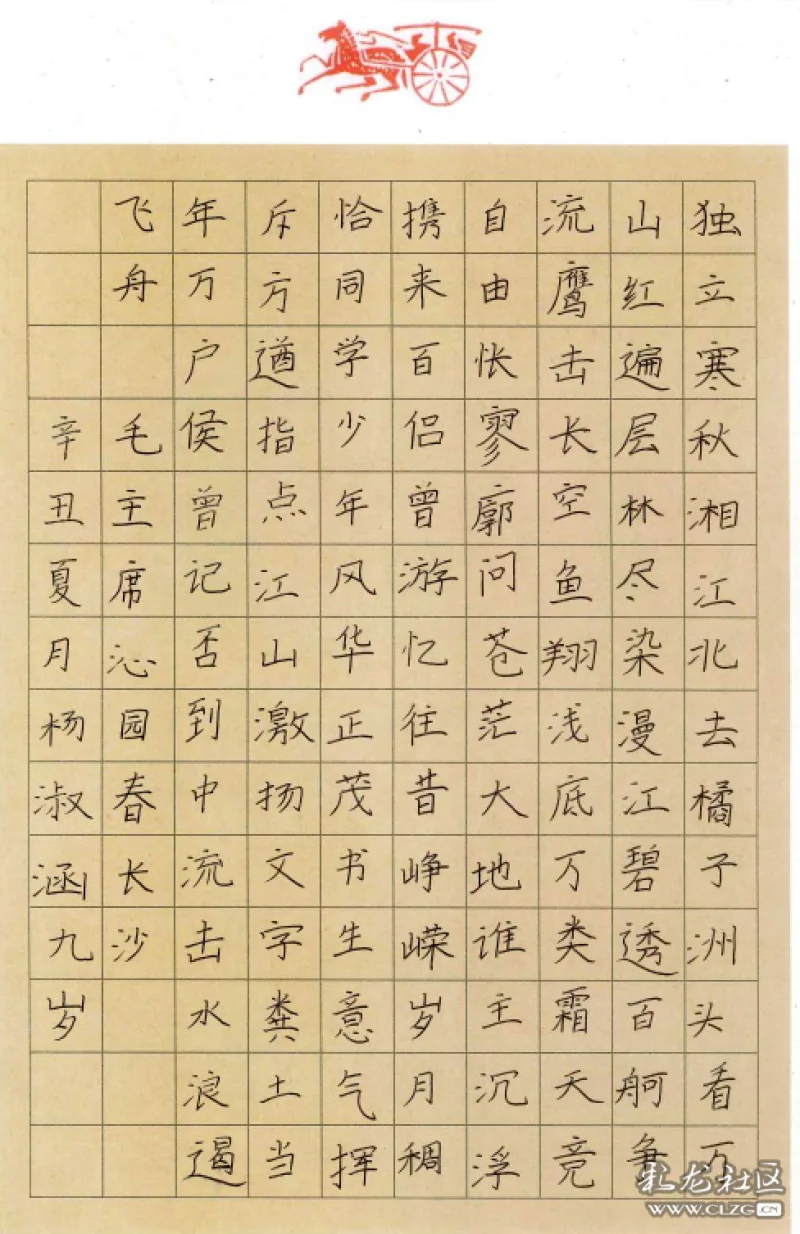 独立寒秋湘江北去橘子洲头看万
山红遍层林尽染漫江碧透百舸争
流鹰击长空鱼翔浅底万类霜天竞
自由怅寥廓问苍茫大地谁主沉浮
携来百侣曾游忆往昔峥嵘岁月稠
恰同学少年风华正茂书生意气挥
斥方遒指点江山激扬文字粪土当
年万户侯曾记否到中流击水浪遏
飞舟 毛主席沁园春长沙
辛丑夏月杨淑涵九岁
彩龙社区
WWW.CLZG.CN